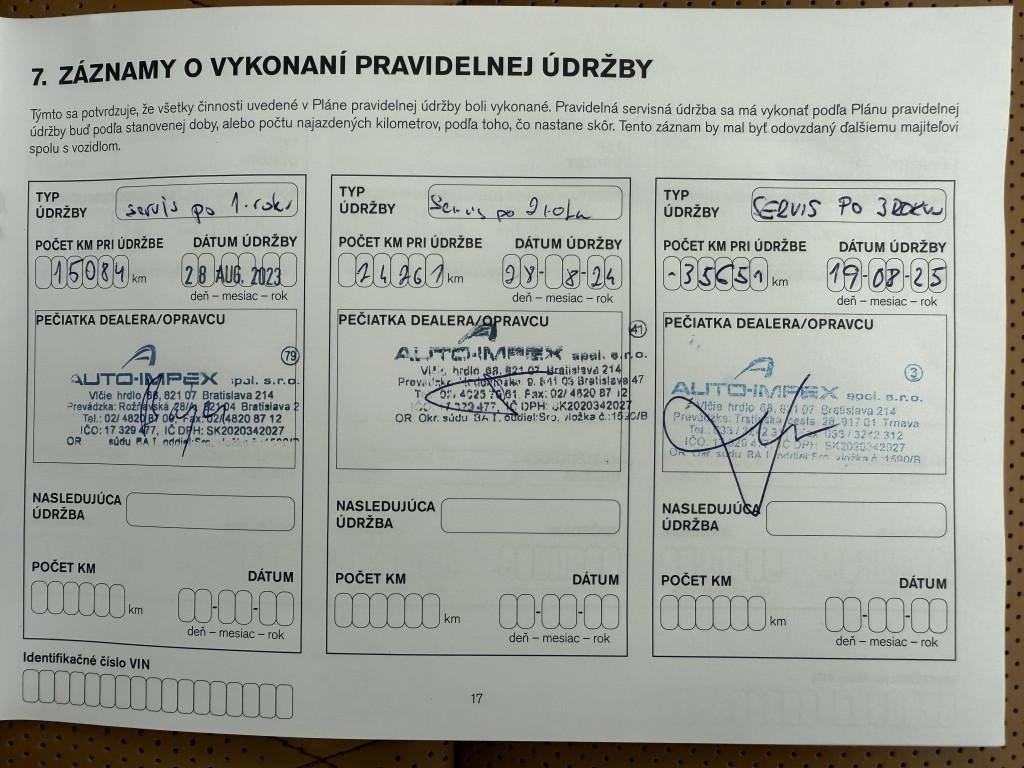 7. ZÁZNAMY O VYKONANÍ PRAVIDELNEJ ÚDRŽBY
Týmto sa potvrdzuje, že všetky činnosti uvedené v Pláne pravidelnej údržby boli vykonané. Pravidelná servisná údržba sa má vykonať podľa Plánu pravidelnej
údržby buď podľa stanovenej doby, alebo počtu najazdených kilometrov, podľa toho, čo nastane skôr. Tento záznam by mal byť odovzdaný ďalšiemu majiteľovi
spolu s vozidlom.
TYP
ÚDRŽBY
servis po 1. roku
POČET KM PRI ÚDRŽBE
DÁTUM ÚDRŽBY
15084 km
28 AUG. 2023
deň – mesiac – rok
PEČIATKA DEALERA/OPRAVCU
79
AUTO-IMPEX spol. s.r.o.
Vlčie hrdlo 68, 821 07 Bratislava 214
Tel.: 02/ 4820 87 Fax: 02/ 4820 87 12
IČO: 17 329 477, IČ DPH: SK2020342027
NASLEDUJÚCA
ÚDRŽBA
POČET KM
DÁTUM
km
deň – mesiac – rok
Identifikačné číslo VIN
TYP
ÚDRŽBY
Servis po 2 roku
POČET KM PRI ÚDRŽBE
DÁTUM ÚDRŽBY
24261 km
28-8-24
deň – mesiac – rok
PEČIATKA DEALERA/OPRAVCU
41
AUTO-IMPEX spol. s.r.o.
Vlčie hrdlo 68, 821 07 Bratislava 214
02/ 4820 87 12
IČ DPH: SK2020342027
OR Okr. súdu BA I. oddiel:Sro, vložka č.:1590/B
NASLEDUJÚCA
ÚDRŽBA
POČET KM
DÁTUM
km
deň – mesiac – rok
TYP
ÚDRŽBY
SERVIS PO 3 ROKU
POČET KM PRI ÚDRŽBE
DÁTUM ÚDRŽBY
-35651 km
19-08-25
deň – mesiac – rok
PEČIATKA DEALERA/OPRAVCU
3
AUTO-IMPEX spol. s.r.o.
Vlčie hrdlo 68, 821 07 Bratislava 214
Prevádzka: Trstínska cesta 28, 917 01 Trnava
IČO: 17 329 IČ DPH: SK2020342027
OR Okr. súdu BA I. oddiel:Sro, vložka č.:1590/B
NASLEDUJÚCA
ÚDRŽBA
POČET KM
DÁTUM
km
deň – mesiac – rok
17